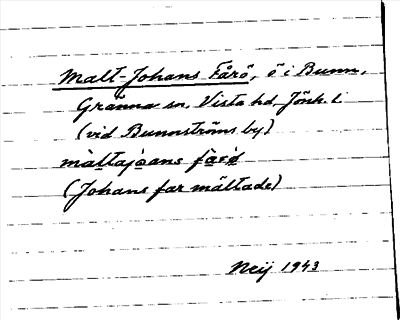 Malt-Johans Fårö, ö i Bunn,
Gränna sn, Vista hd, Jönk. l.
(vid Bunnströms by)
màltajòans fårö
(Johans far mältade)
Neij 1943